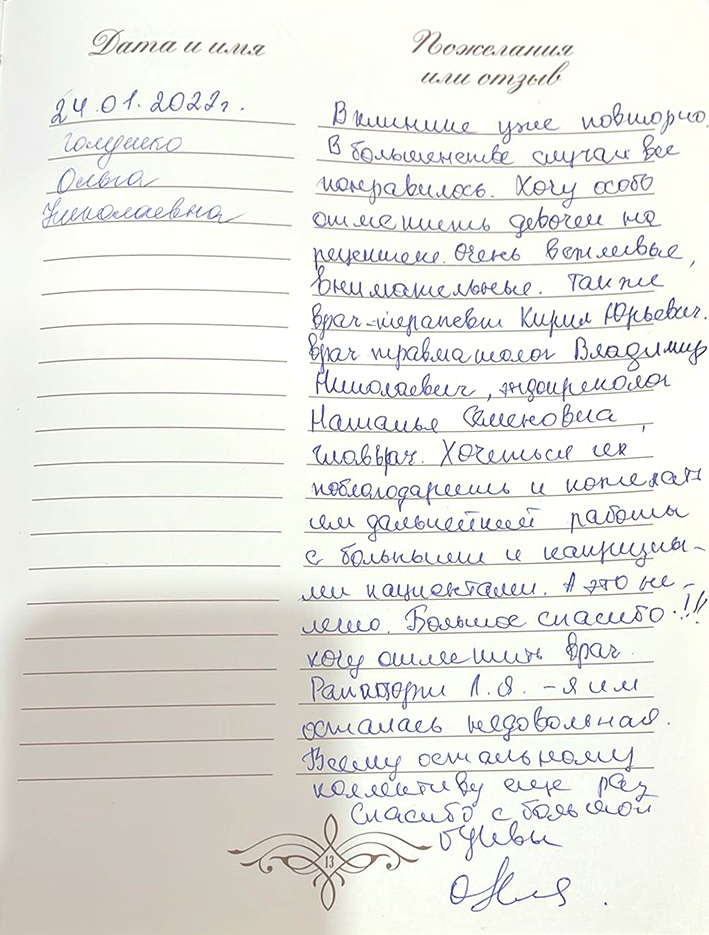 Дата и имя
Пожелания
или отзыв
24.01.2022г.
Ольга
Николаевна
В клинике уже повторно.
В большенстве случаи все
понравилось. Хочу особо
отметить девочек на
рецепшене. Очень вежливые,
внимательные. Также
врач-терапевт Кирил Юрьевич.
Врач травматолог Владимир
Николаевич, эндокренолог
Наталья Семеновна,
главврач. Хочеться их
поблагодарить и пожелать
им дальнейшей работы
с больными и капризны-
ми пациентами. А это не-
легко. Большое спасибо!!!
хочу отметить врач
Л.Я. - я им
осталась недовольная.
Всему остальному
коллективу еще раз
Спасибо с большой
буквы
13